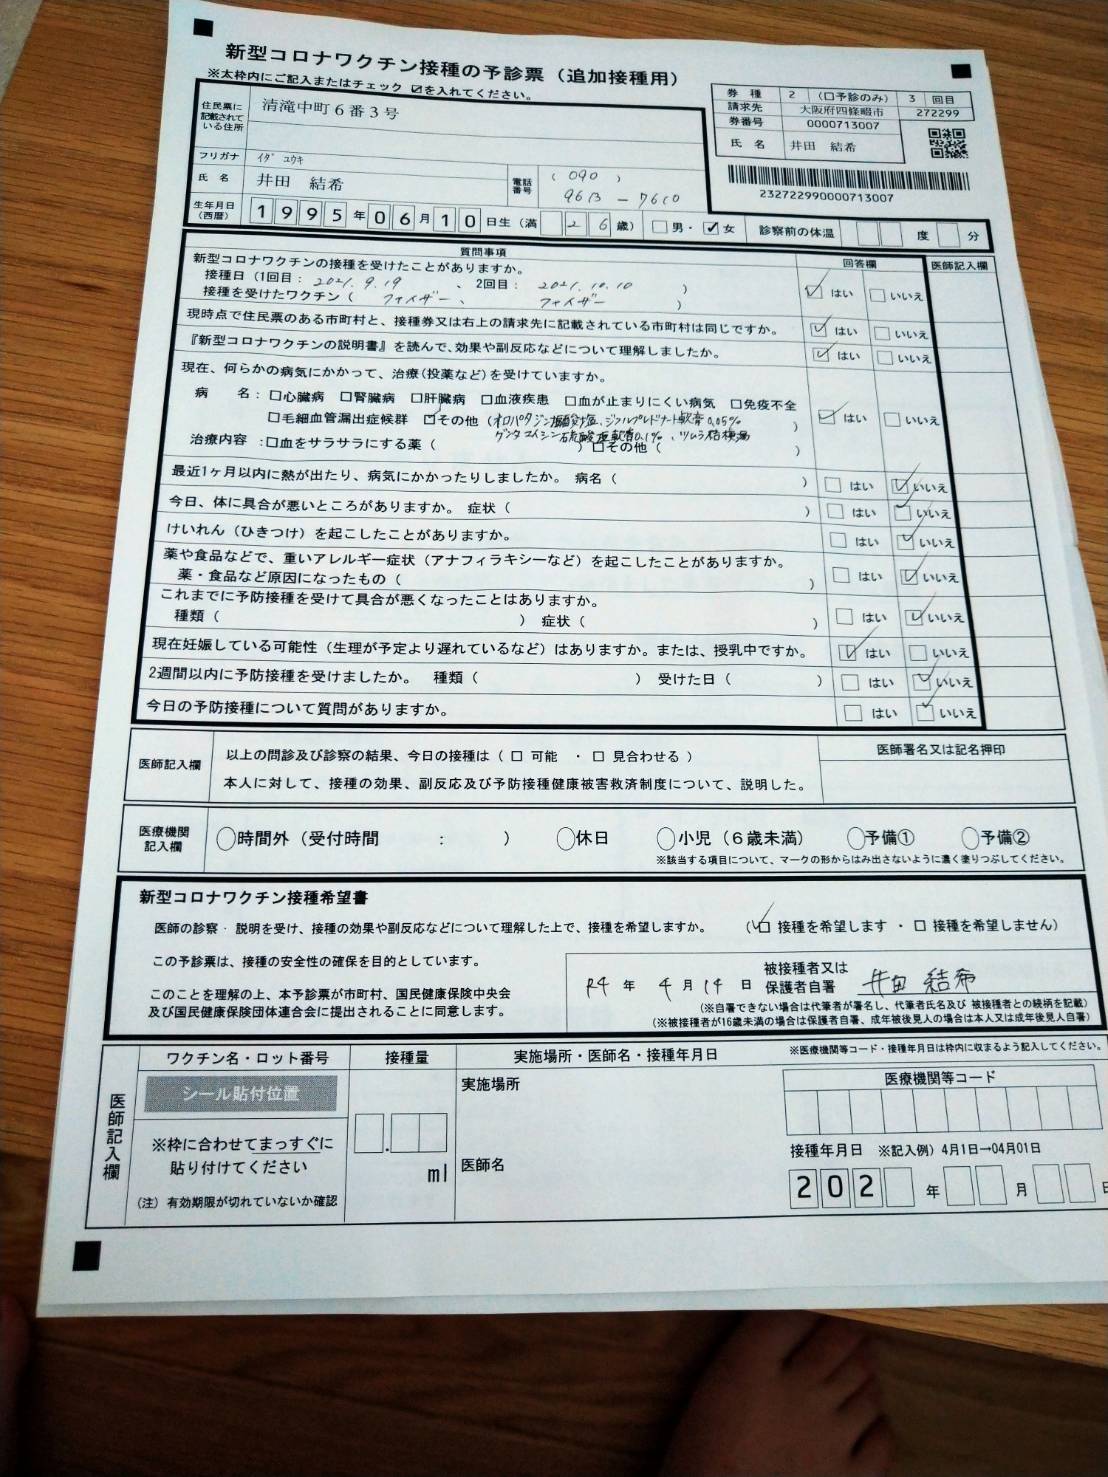 新型コロナワクチン接種の予診票（追加接種用）
※太枠内にご記入またはチェック☑を入れてください。
券 種 2 （口予診のみ） 3 回目
請求先 大阪府四條畷市 272299
券番号 0000713007
氏 名 井田 結希
232722990000713007
住民票に記載されている住所 清滝中町６番３号
フリガナ イダ ユウキ
氏 名 井田 結希
電話番号 （ 090 ） 9613 － 7610
生年月日（西暦） 1995年06月10日生（満 26歳） □男・☑女 診察前の体温 度 分
質問事項 回答欄 医師記入欄
新型コロナワクチンの接種を受けたことがありますか。
接種日（1回目： 2021.9.19 、 2回目： 2021.10.10 ）
接種を受けたワクチン（ ファイザー 、 ファイザー ） ☑はい □いいえ
現時点で住民票のある市町村と、接種券又は右上の請求先に記載されている市町村は同じですか。 ☑はい □いいえ
『新型コロナワクチンの説明書』を読んで、効果や副反応などについて理解しましたか。 ☑はい □いいえ
現在、何らかの病気にかかって、治療（投薬など）を受けていますか。
病 名：□心臓病 □腎臓病 □肝臓病 □血液疾患 □血が止まりにくい病気 □免疫不全
□毛細血管漏出症候群 ☑その他（オロパタジン塩酸塩、ジフルプレドナート軟膏0.05% ） ☑はい □いいえ
ゲンタマイシン硫酸塩軟膏0.1%、ツムラ
治療内容 ：□血をサラサラにする薬（ ）□その他（ ）
最近1ヶ月以内に熱が出たり、病気にかかったりしましたか。 病名（ ） □はい ☑いいえ
今日、体に具合が悪いところがありますか。 症状（ ） □はい ☑いいえ
けいれん（ひきつけ）を起こしたことがありますか。 □はい ☑いいえ
薬や食品などで、重いアレルギー症状（アナフィラキシーなど）を起こしたことがありますか。
薬・食品など原因になったもの（ ） □はい ☑いいえ
これまでに予防接種を受けて具合が悪くなったことはありますか。
種類（ ） 症状（ ） □はい ☑いいえ
現在妊娠している可能性（生理が予定より遅れているなど）はありますか。または、授乳中ですか。 ☑はい □いいえ
2週間以内に予防接種を受けましたか。 種類（ ） 受けた日（ ） □はい ☑いいえ
今日の予防接種について質問がありますか。 □はい ☑いいえ
医師記入欄 以上の問診及び診察の結果、今日の接種は（ □ 可能 ・ □ 見合わせる ）
本人に対して、接種の効果、副反応及び予防接種健康被害救済制度について、説明した。
医師署名又は記名押印
医療機関記入欄 ○時間外（受付時間 ： ） ○休日 ○小児（６歳未満） ○予備① ○予備②
※該当する項目について、マークの形からはみ出さないように濃く塗りつぶしてください。
新型コロナワクチン接種希望書
医師の診察・説明を受け、接種の効果や副反応などについて理解した上で、接種を希望しますか。 （☑ 接種を希望します ・ □ 接種を希望しません）
この予診票は、接種の安全性の確保を目的としています。
このことを理解の上、本予診票が市町村、国民健康保険中央会
及び国民健康保険団体連合会に提出されることに同意します。
R4 年 4 月 14 日 被接種者又は保護者自署 井田 結希
（※自署できない場合は代筆者が署名し、代筆者氏名及び 被接種者との続柄を記載）
（※被接種者が16歳未満の場合は保護者自署、成年被後見人の場合は本人又は成年後見人自署）
医師記入欄
ワクチン名・ロット番号 接種量 実施場所・医師名・接種年月日
※医療機関等コード・接種年月日は枠内に収まるよう記入してください。
シール貼付位置
※枠に合わせてまっすぐに
貼り付けてください
（注）有効期限が切れていないか確認
. ml
実施場所
医師名
医療機関等コード
接種年月日 ※記入例）4月1日→04月01日
202 年 月 日